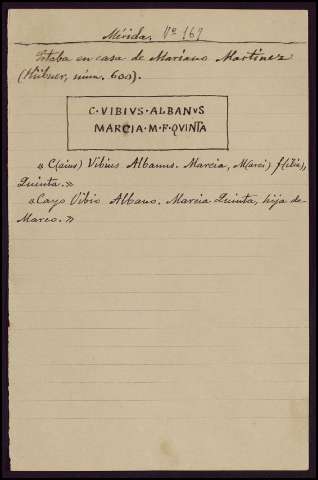 Mérida. Vº 162
Estaba en casa de Mariano Martinez
(Hübner, núm. 600).
C·VIBIVS·ALBANVS
MARCIA·M·F·QVINTA
«C(aius) Vibius Albanus. Marcia, M(arci) f(ilia),
Quinta.»
«Cayo Vibio Albano. Marcia Quinta, hija de
Marco.»